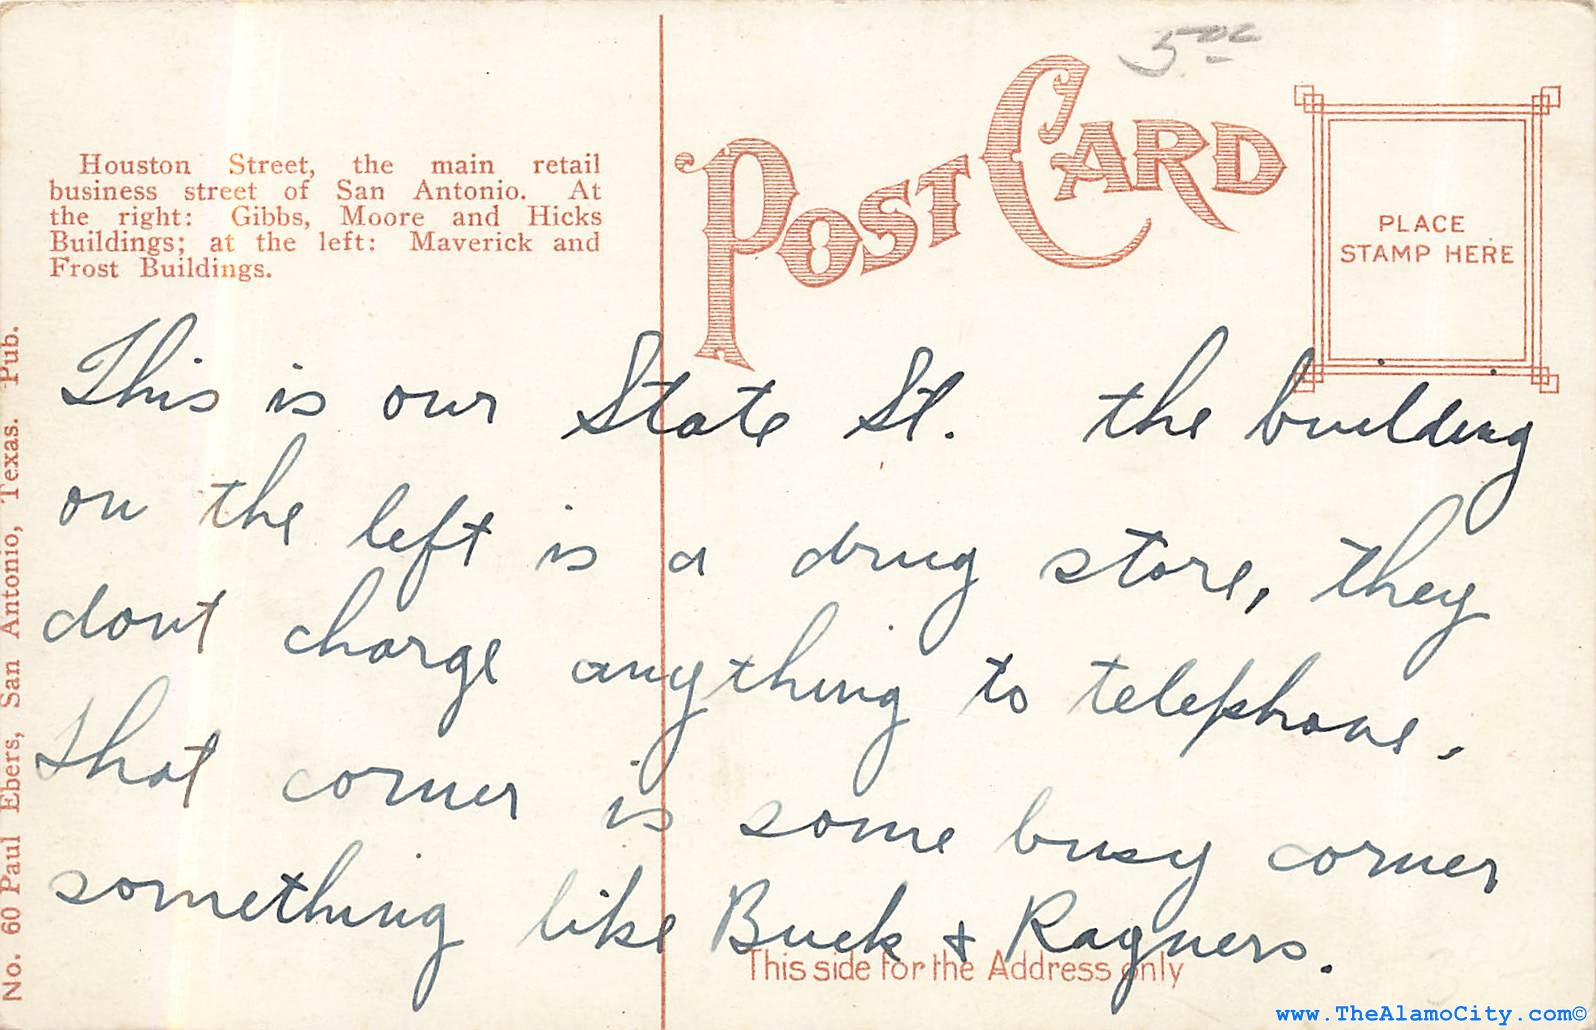 5.00
POST CARD
PLACE
STAMP HERE
Houston Street, the main retail
business street of San Antonio. At
the right: Gibbs, Moore and Hicks
Buildings; at the left: Maverick and
Frost Buildings.
No. 60 Paul Ebers, San Antonio, Texas. Pub.
This is our State St. the building
on the left is a drug store, they
dont charge anything to telephone.
That corner is some busy corner
something like Buck & Ragners.
This side for the Address only
www.TheAlamoCity.com©